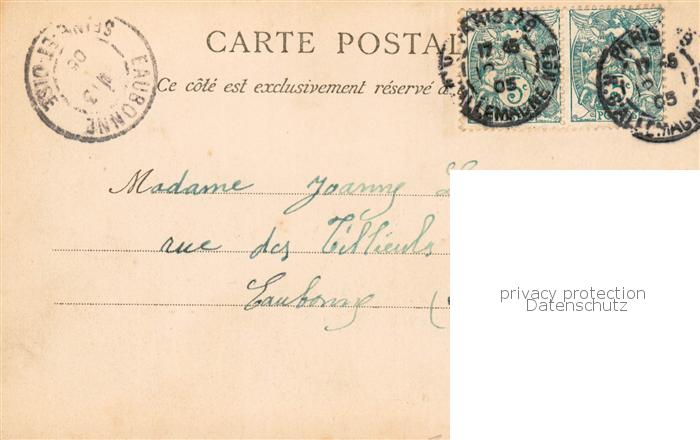 CARTE POSTAL
Ce côté est exclusivement réservé à
EAUBONNE
SEINE-ET-OISE
05
PARIS
R. D'ALLEMAGNE
05
PARIS
R. D'ALLEMAGNE
05
5
5
POSTES
Madame Joanne
rue des Tilleuls
Eaubonne (
privacy protection
Datenschutz